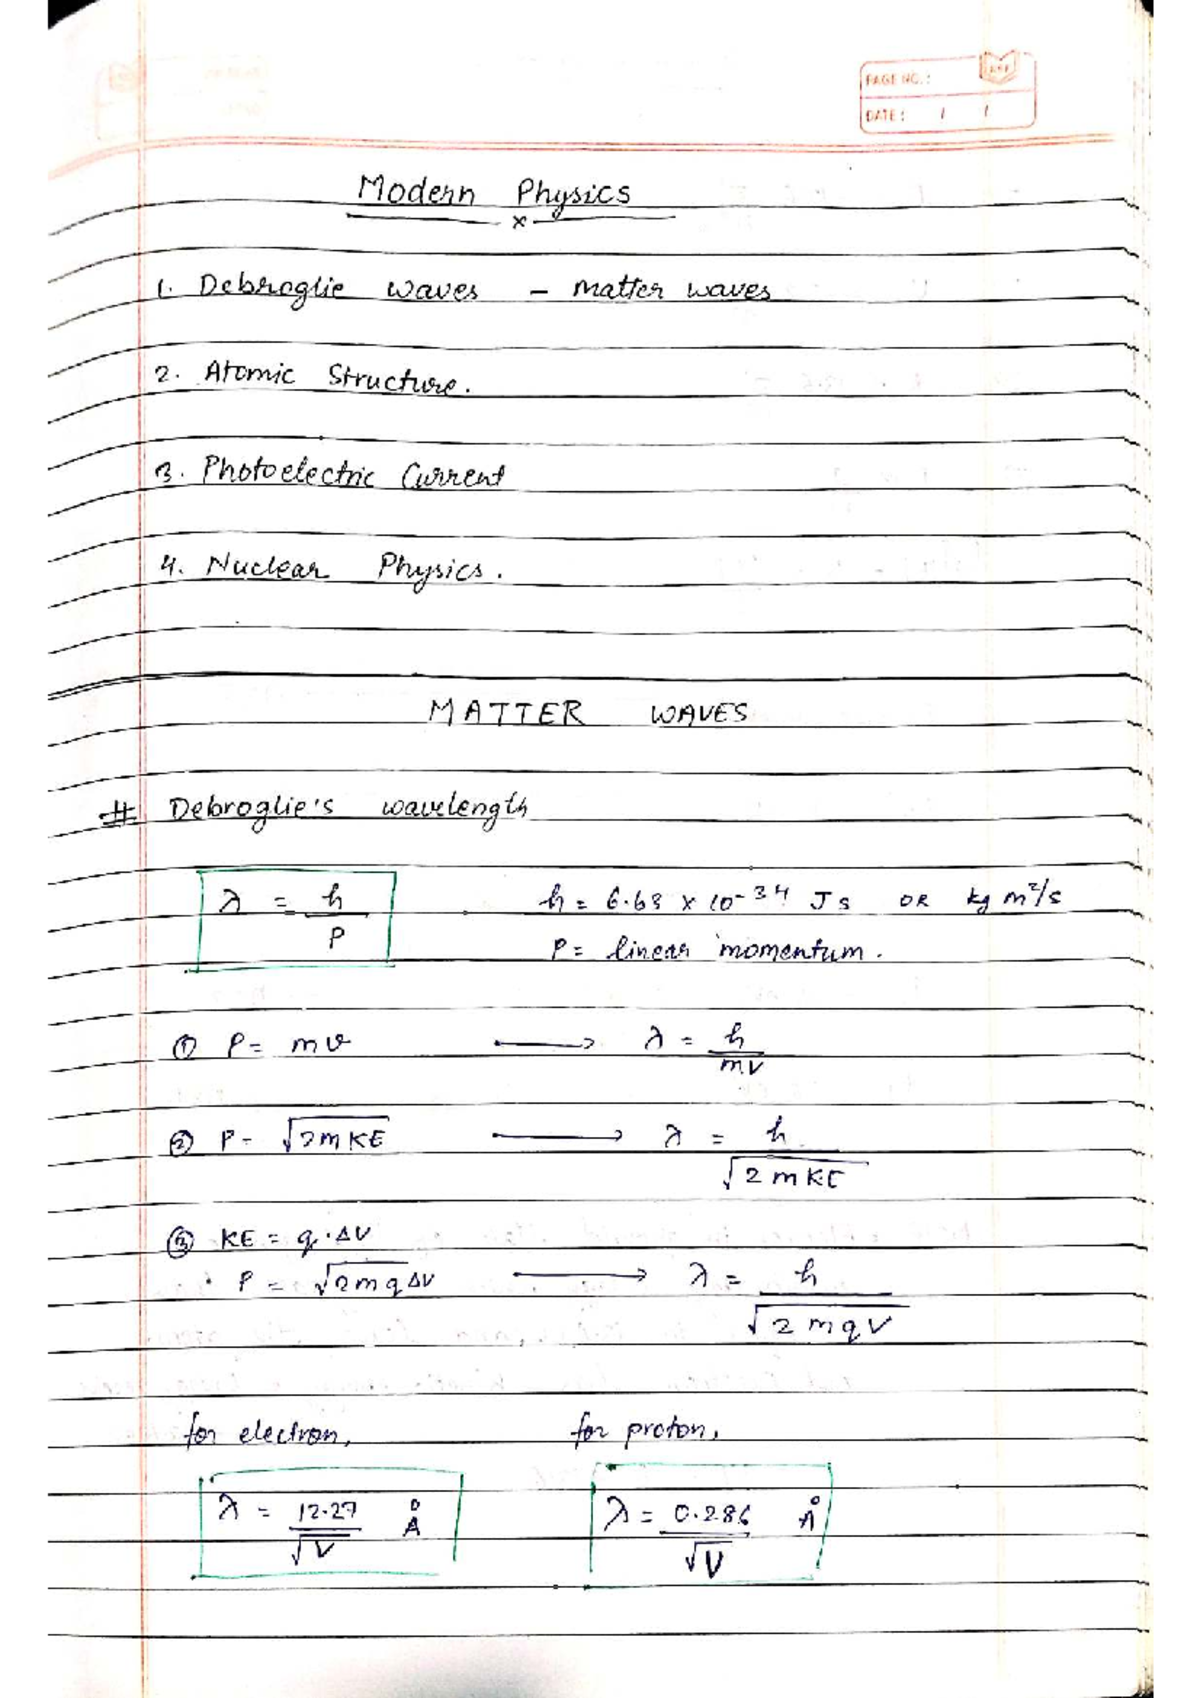 PAGE NO. :
DATE : / /
Modern Physics
x
1. Debroglie waves - matter waves
2. Atomic Structure.
3. Photoelectric Current
4. Nuclear Physics.
MATTER WAVES
# Debroglie's wavelength
λ = h/P h = 6.63 x 10-34 Js OR kg m²/s
P = linear momentum.
① P = mv → λ = h/mv
② P = √2mKE → λ = h/√2mKE
③ KE = q.ΔV
P = √2mqΔV → λ = h/√2mqV
for electron, for proton,
λ = 12.27/√V Å λ = 0.286/√V Å